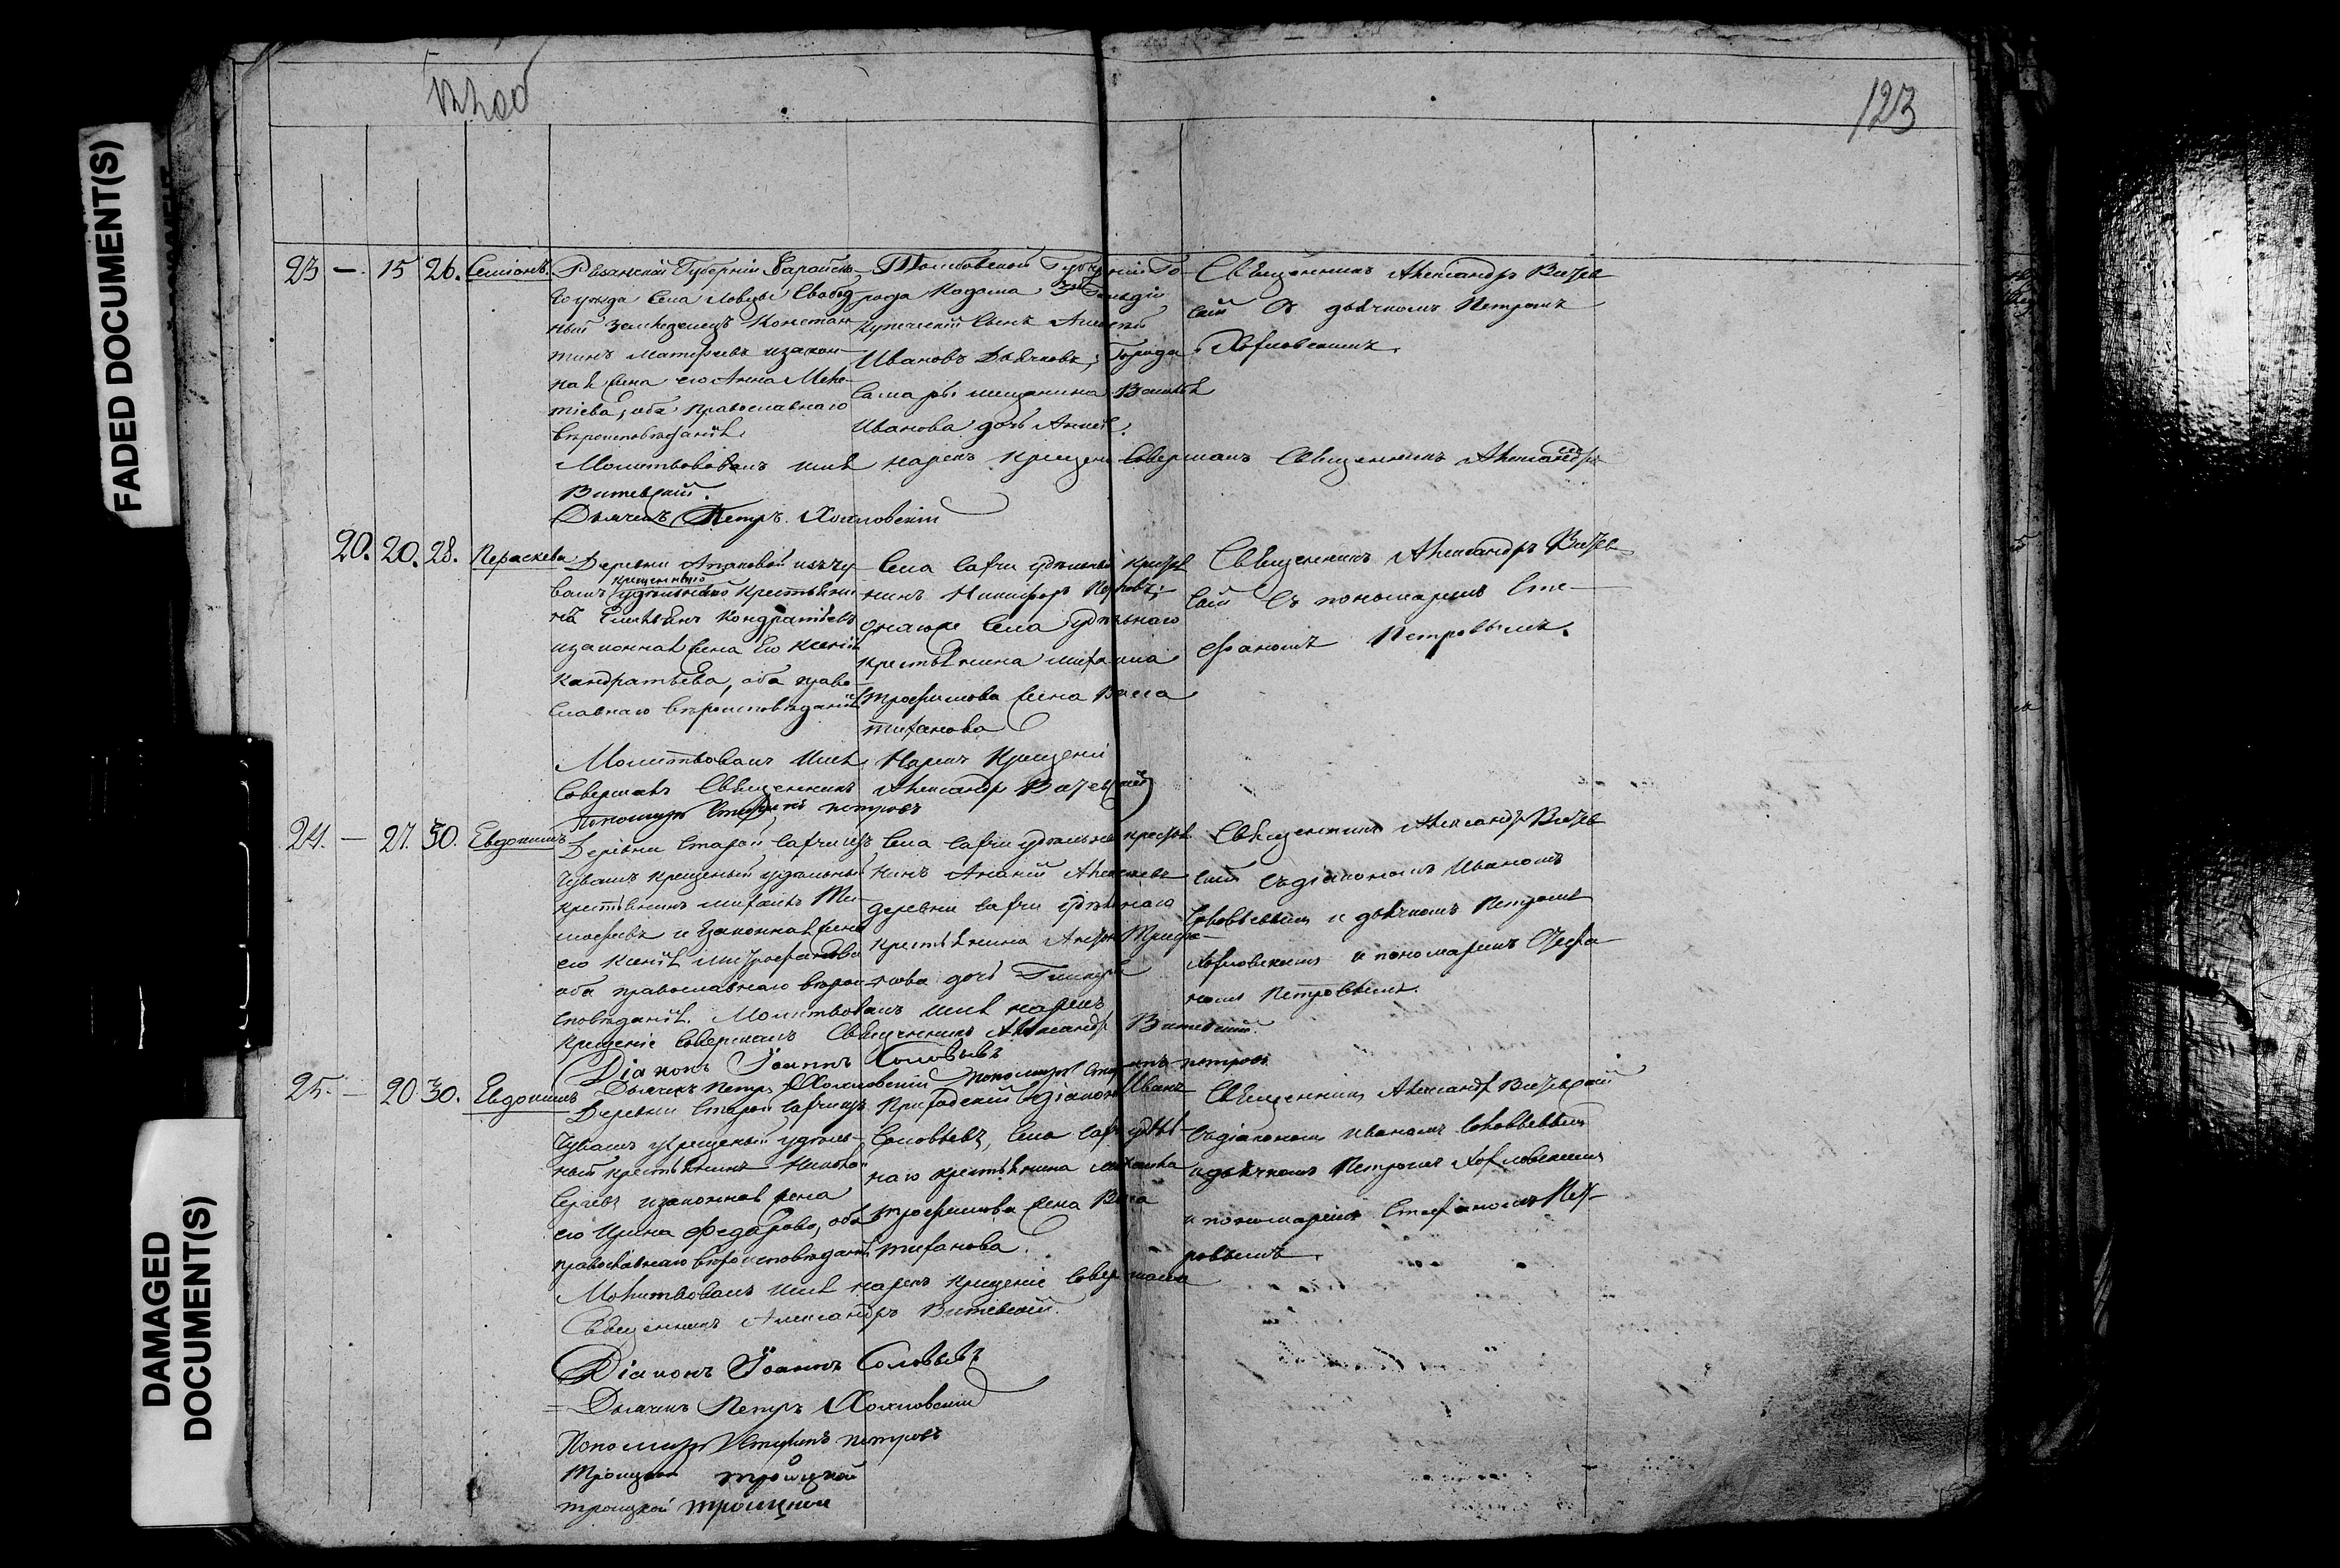 123
FADED DOCUMENT(S)
23 — 15 26. Симіонъ.
Резанской Губерніи Зарайска-
го уезда села Ловцы Свобод
ный Земледелецъ Констан
тинъ Матфеевъ и закон-
ная жена его Анна
оба православнаго
вероисповеданія.
Тамбовской Губерніи Го-
рода Кадама 3й Гильдіи
купеческій сынъ Алексей
Ивановъ Дьячковъ; Города
Самары мещанина
Иванова дочь
Священникъ Александръ Витев
скій съ дьячкомъ Петромъ
Хохловскимъ.
Молитвовалъ имя нарекъ крещеніе совершалъ Священникъ Александръ
Витевскій.
Дьячекъ Петръ Хохловскій
20. 20. 28. Пераскева
Деревни изъ чу
вашъ крещеннаго удельнаго крестьяни
на Емельянъ Кондратьевъ
и законная жена Его Ксенія
Кандратьева, оба право-
славнаго вероисповеданія
Села удельный крестья
нинъ Никифоръ
онагоже села удельнаго
крестьянина Михаила
Трофимова жена Васса
Тиханова
Священникъ Александръ Витев
скій съ пономаремъ Сте-
фаномъ Петровымъ.
Молитвовалъ имя Нарекъ Крещеніе
Совершалъ Священникъ Александръ Витевскій
Пономарь Стефанъ Петровъ
24. — 27. 30. Евдокимъ
Деревни Старой изъ
Чувашъ крещеный удельный
крестьянинъ Михаилъ Ти-
мофеевъ и Законная жена
его Ксенія Митрофанова
оба православнаго вероис-
поведанія.
Села удельный крестья
нинъ Ананій Алексеевъ
деревни удельнаго
крестьянина
дочь
Священникъ Александръ Витев
скій съ діакономъ Иваномъ
Соловьевымъ и дьячкомъ Петромъ
Хохловскимъ и пономаремъ Стефа-
номъ Петровымъ.
Молитвовалъ имя нарекъ
крещеніе совершалъ Священникъ Александръ Витевскій.
Діаконъ Іоаннъ Соловьевъ
Дьячекъ Петръ Хохловскій Пономарь Стефанъ Петровъ
25. — 20 30. Евдокимъ
Деревни Старой изъ
Чувашъ крещеный удель-
ный крестьянинъ Никола
Сергеевъ и законная жена
его Ирина Федорова, оба
православнаго вероисповеданія
Приходскій діаконъ Иванъ
Соловьевъ, села удель-
наго крестьянина Михаила
Трофимова жена Васса
Тиханова.
Священникъ Александръ Витевскій
съ діакономъ Иваномъ Соловьевымъ
и дьячкомъ Петромъ Хохловскимъ
и пономаремъ Стефаномъ Пет-
ровымъ.
Молитвовалъ имя нарекъ крещеніе совершалъ
Священникъ Александръ Витевскій.
Діаконъ Іоаннъ Соловьевъ
Дьячекъ Петръ Хохловскій
Пономарь Стефанъ Петровъ
Троицкой троицкой
троицкой троицкой
DAMAGED
DOCUMENT(S)